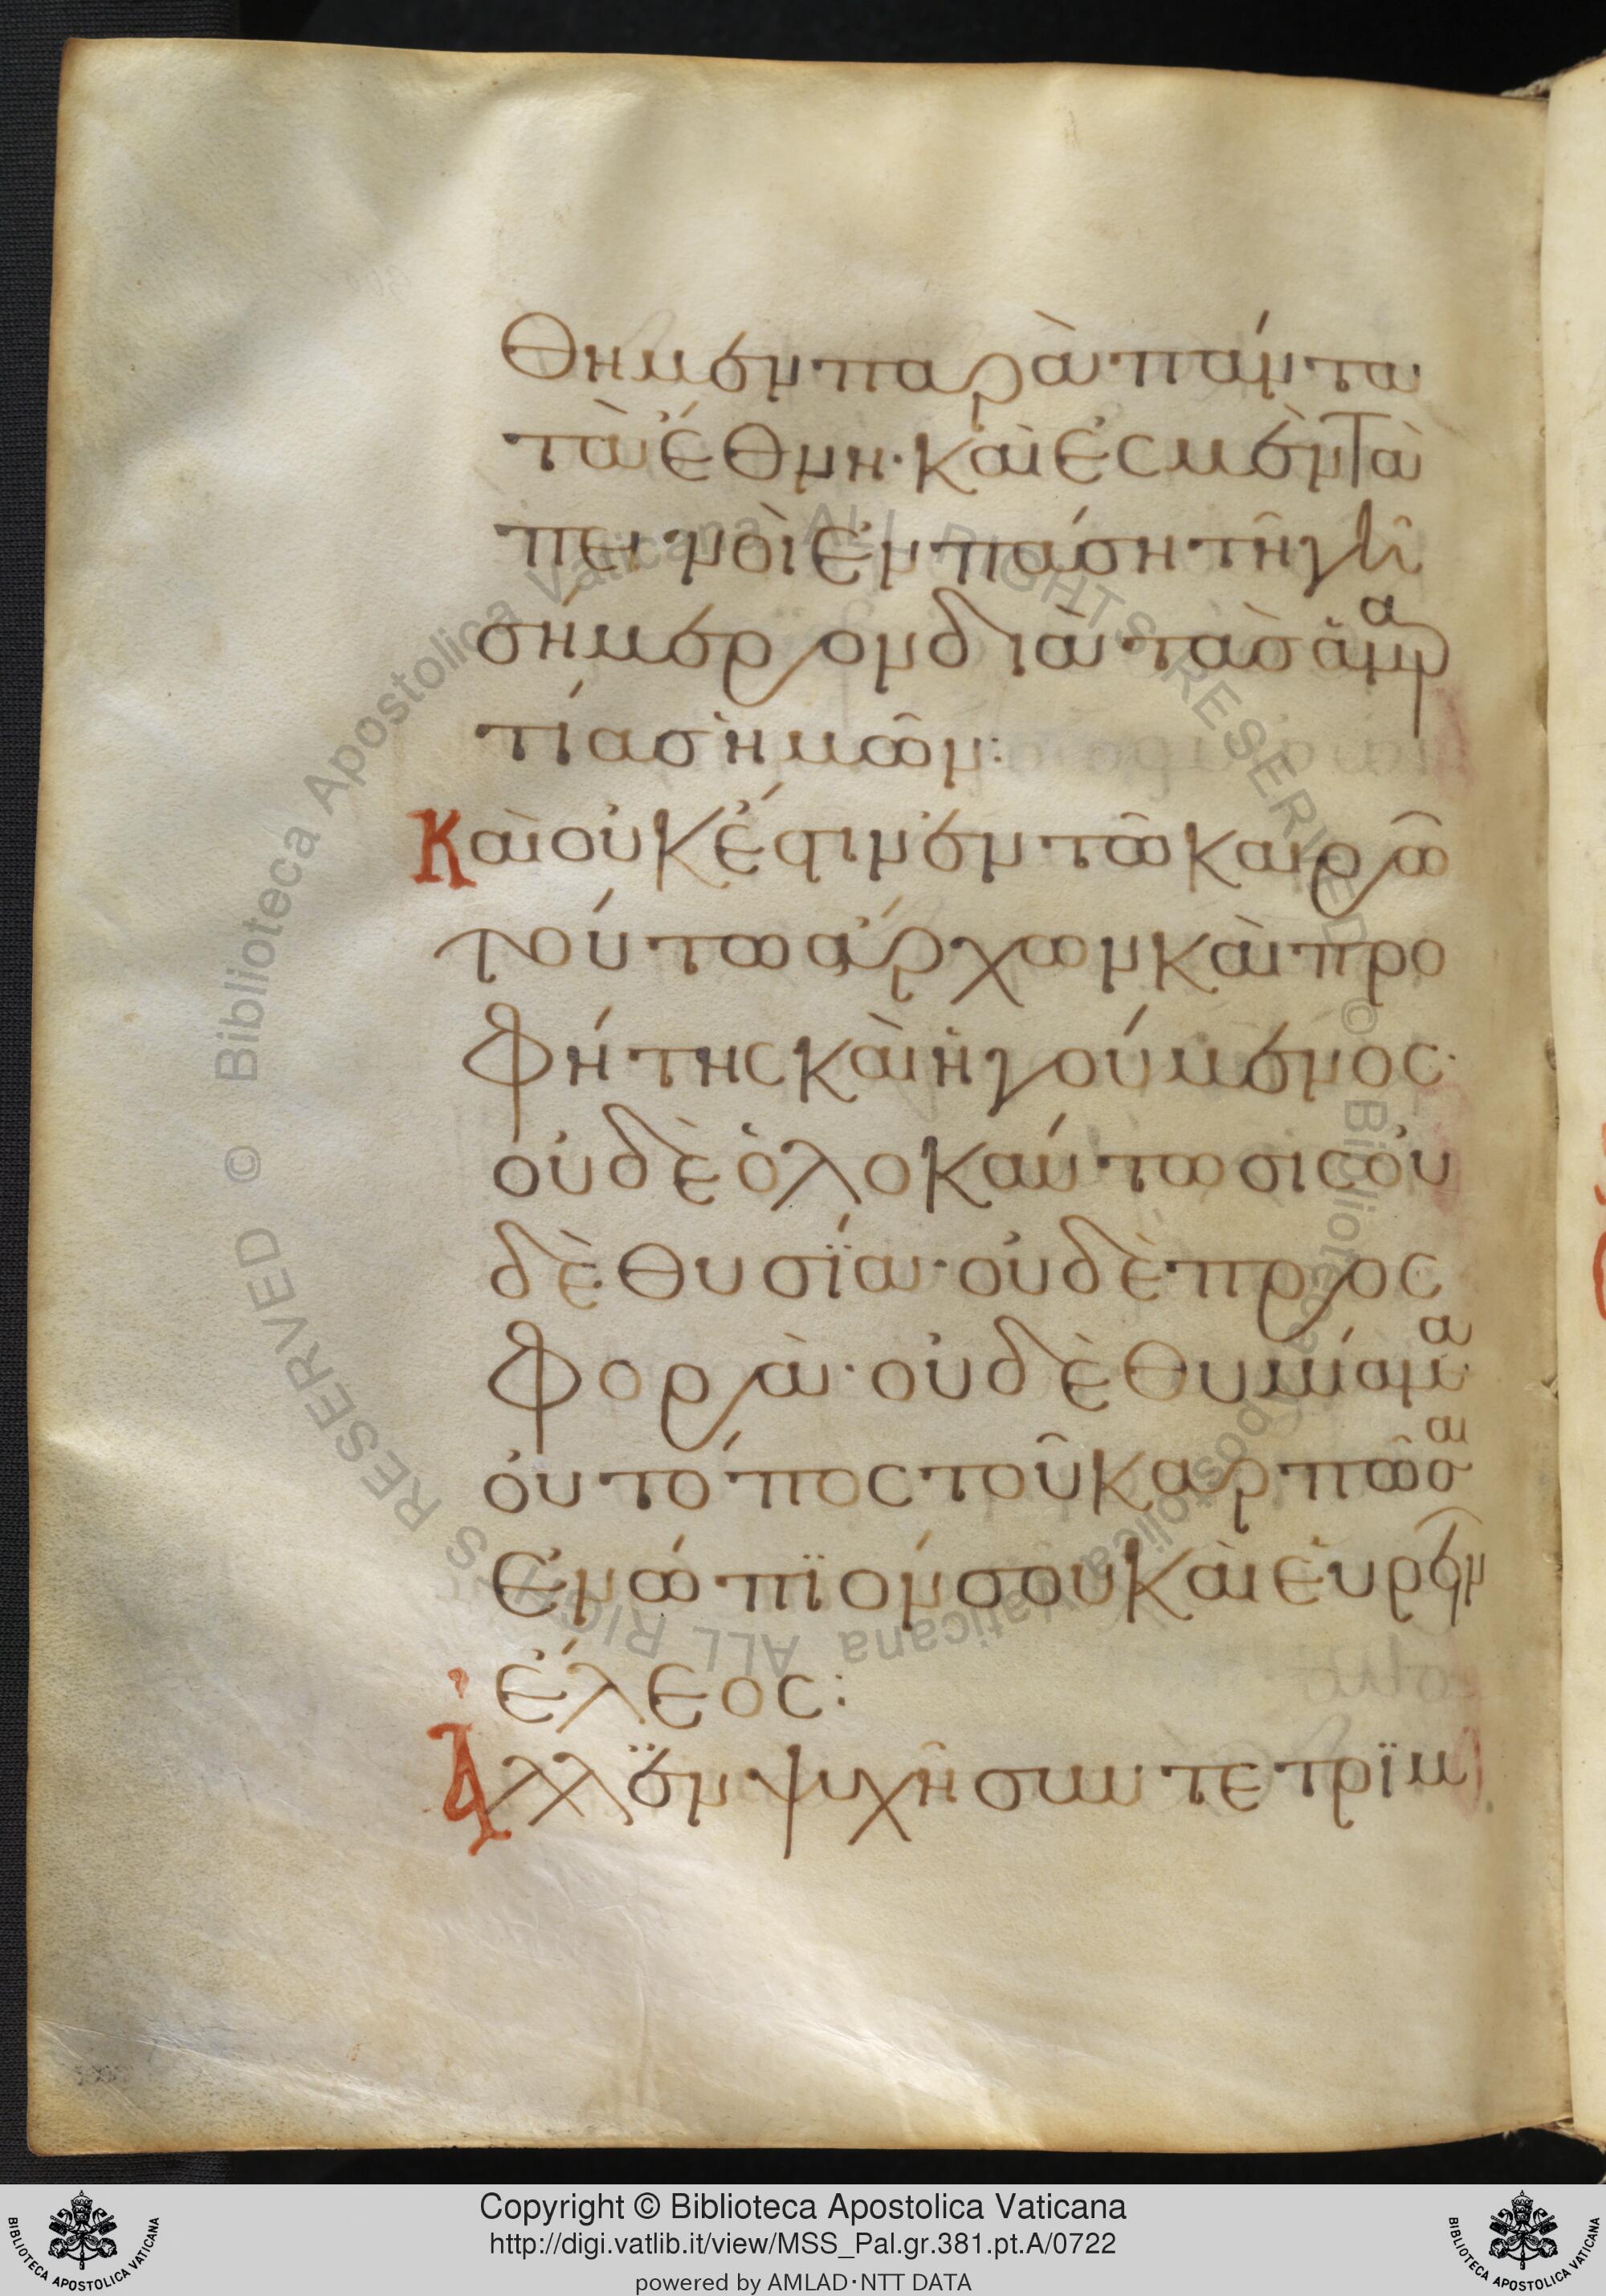 θημεν παρὰ πάντα
τὰ ἔθνη· καὶ ἐσμὲν τα
πεινοὶ ἐν πάση τῆ γῆ
σήμερον διὰ τὰσ ἁμαρ
τίασ ἡμῶν:
Καὶ οὐκ ἔστιν ἐν τῶ καιρῶ
τούτω ἄρχων καὶ προ
φήτης καὶ ἡγούμενος·
οὐδὲ ὁλοκαύτωσις οὐ
δὲ θυσία· οὐδὲ προς
φορὰ· οὐδὲ θυμίαμα·
οὐ τόπος τοῦ καρπῶσαι
ἐνώπϊόν σου καὶ εὑρεῖν
ἔλεος:
Ἀλλ ἐν ψυχῆ συντετριμ
© Biblioteca Apostolica Vaticana ALL RIGHTS RESERVED © Biblioteca Apostolica Vaticana ALL RIGHTS RESERVED
BIBLIOTECA APOSTOLICA VATICANA
Copyright © Biblioteca Apostolica Vaticana
http://digi.vatlib.it/view/MSS_Pal.gr.381.pt.A/0722
powered by AMLAD·NTT DATA
BIBLIOTECA APOSTOLICA VATICANA